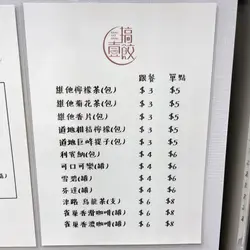 三搞
壹餃
跟餐 單點
維他檸檬茶(包) $3 $5
維他菊花茶(包) $3 $5
維他香片(包) $3 $5
道地柑桔檸檬(包) $3 $5
道地巨峰提子(包) $3 $5
利賓納(包) $4 $6
可口可樂(罐) $4 $6
雪碧(罐) $4 $6
芬達(罐) $4 $6
津路 烏龍茶(支) $6 $8
雀巢香滑咖啡(罐) $6 $8
雀巢香濃咖啡(罐) $6 $8